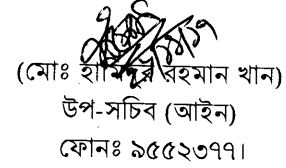 (মোঃ হামিদুর রহমান খান)
উপ-সচিব (আইন)
ফোনঃ ৯৫৫২৩৭৭।